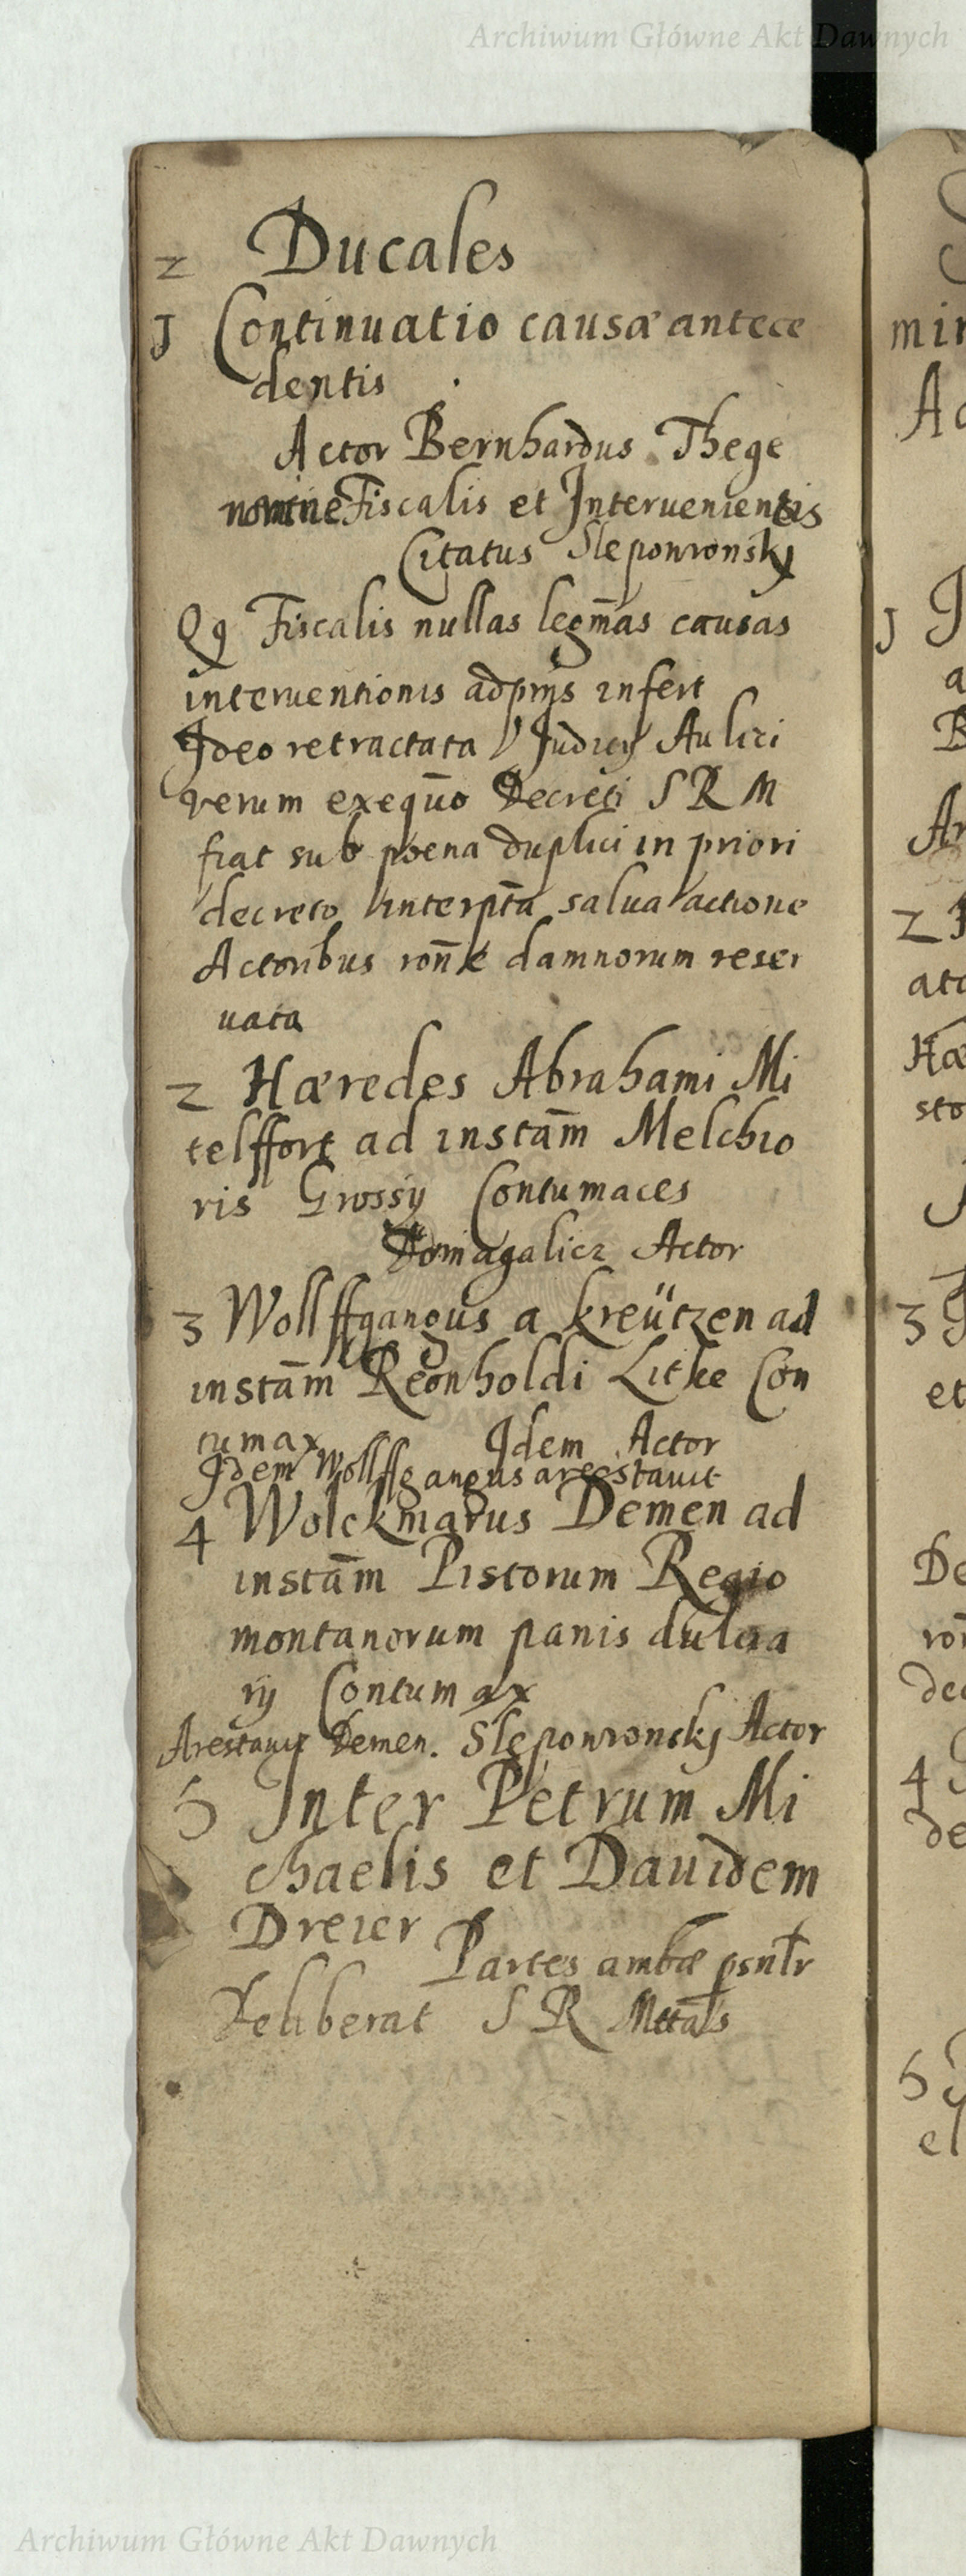 Archiwum Główne Akt Dawnych
2 Ducales
1 Continuatio causæ antece
dentis
Actor Bernhardus Thege
nomine Fiscalis et Interuenientis
Citatus Sleponronskj
Qq Fiscalis nullas legm̄as causas
interuentionis adpn̄s infert
Ideo retractata Judicij Aulici
verum exequūo Decreti S R M
fiat sub poena duplici in priori
decreto interpt̄a salua actione
Actoribus ron̄e damnorum reser
uata
2 Hæredes Abrahami Mi
telffort ad instām Melchio
ris Grossij Contumaces
Domagalicz Actor
3 Wollffgangus a kreützen ad
instām Reonholdi Litke Con
tumax Idem Actor
Idem Wollffgangus arestauit
4 Wolckmarus Demen ad
instām Pistorum Regio
montanorum panis dulcia
rij Contumax
Arestauit Demen. Sleponronskj Actor
5 Inter Petrum Mi
chaelis et Dauidem
Dreier
Partes ambæ psnt̄r
Deliberat S R Mttas
min
Ac
1
a
B
Ar
2
Hæ
sto
3
et
De
ron̄
dec
4
de
5
el
Archiwum Główne Akt Dawnych